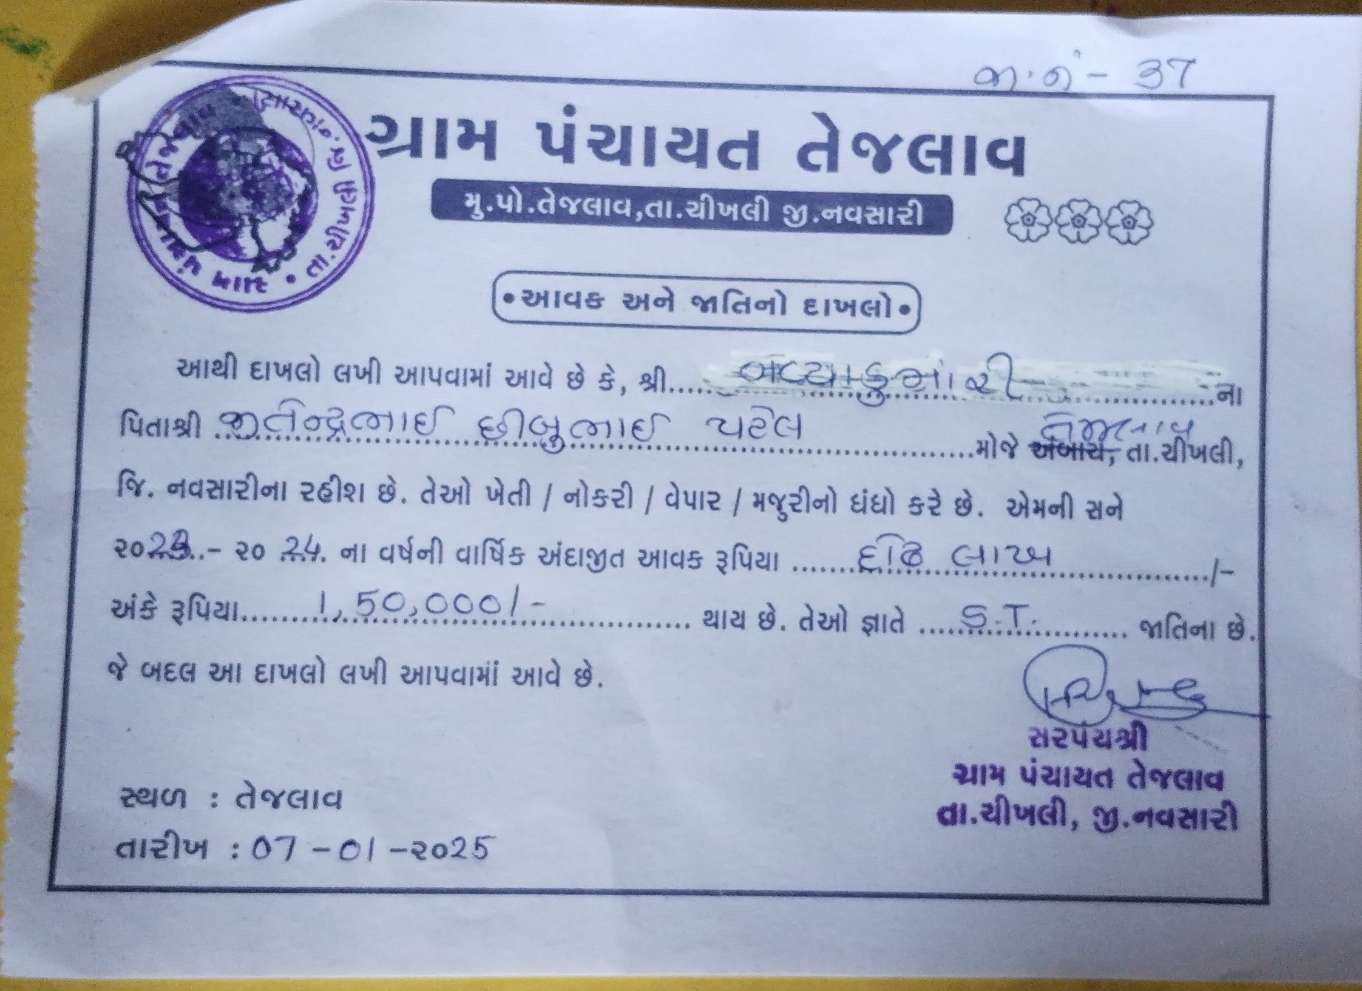 જા.નં - 37
ગ્રામ પંચાયત તેજલાવ
મુ.પો.તેજલાવ,તા.ચીખલી જી.નવસારી
• આવક અને જાતિનો દાખલો •
આથી દાખલો લખી આપવામાં આવે છે કે, શ્રી.......ના
પિતાશ્રી જીતેન્દ્રભાઈ છીબુભાઈ પટેલ મોજે તેજલાવ તા.ચીખલી,
જિ. નવસારીના રહીશ છે. તેઓ ખેતી / નોકરી / વેપાર / મજુરીનો ધંધો કરે છે. એમની સને
૨૦23..- ૨૦ 24. ના વર્ષની વાર્ષિક અંદાજીત આવક રૂપિયા ...... દોઢ લાખ ......../-
અંકે રૂપિયા....... 1,50,000/- ........ થાય છે. તેઓ જ્ઞાતે .... S.T. ....... જાતિના છે.
જે બદલ આ દાખલો લખી આપવામાં આવે છે.
સરપંચશ્રી
ગ્રામ પંચાયત તેજલાવ
તા.ચીખલી, જી.નવસારી
સ્થળ : તેજલાવ
તારીખ : 07 -01 -૨૦25